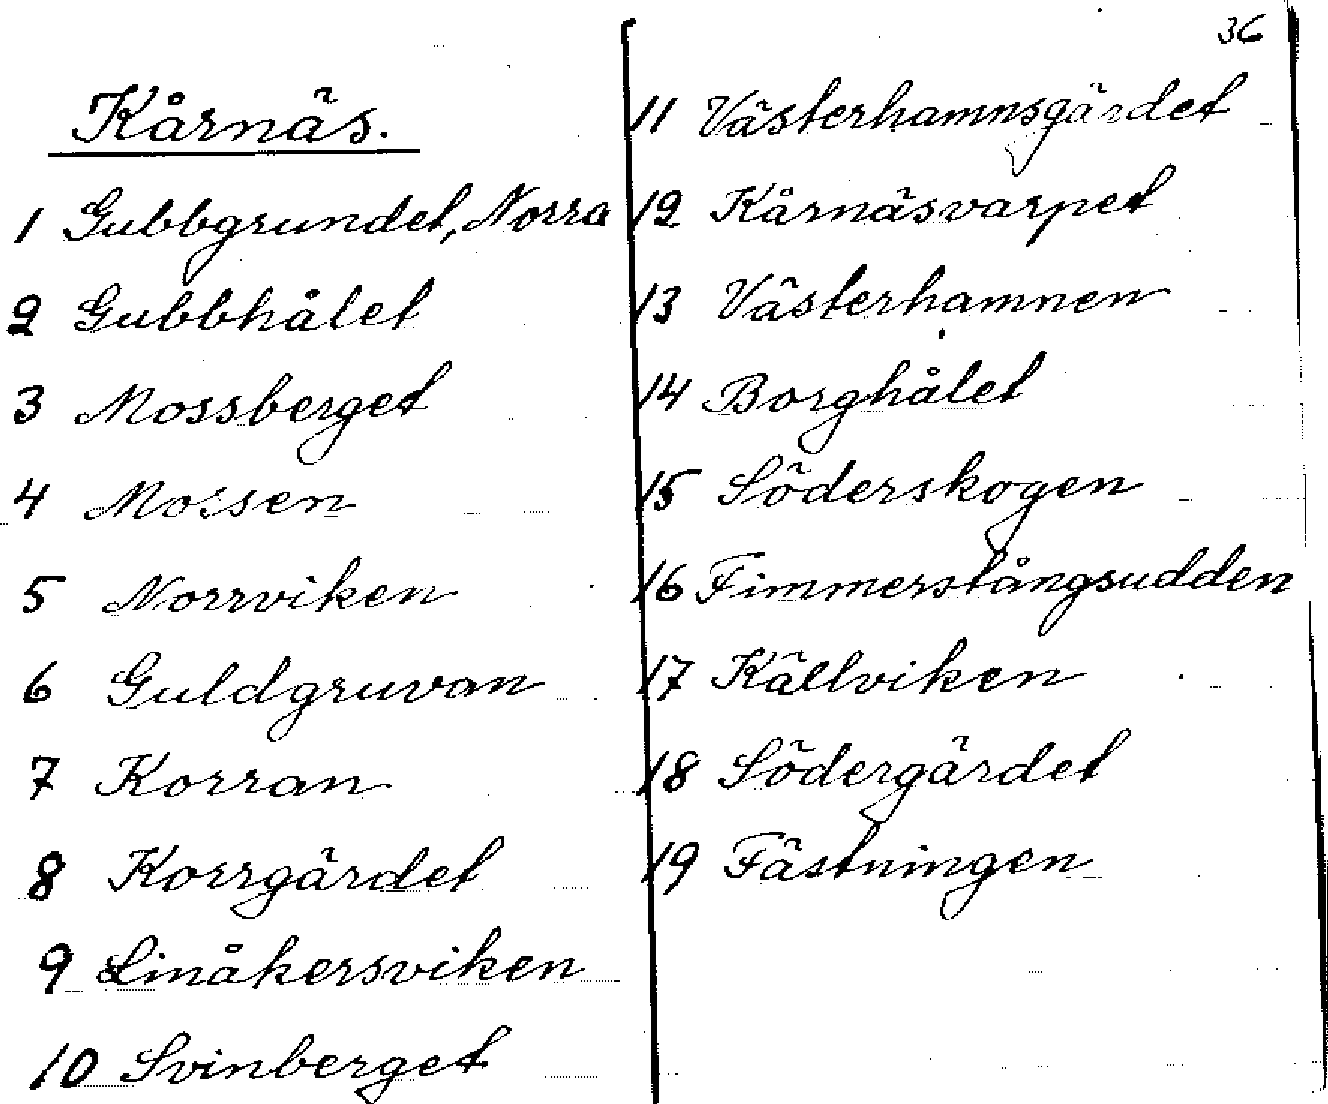 36
Kårnäs.
1 Gubbgrundet, Norra
2 Gubbhålet
3 Mossberget
4 Mossen
5 Norrviken
6 Guldgruvan
7 Korran
8 Korrgärdet
9 Linåkersviken
10 Svinberget
11 Västerhamnsgärdet
12 Kårnäsvarpet
13 Västerhamnen
14 Borghålet
15 Söderskogen
16 Fimmerstångsudden
17 Källviken
18 Södergärdet
19 Fästningen